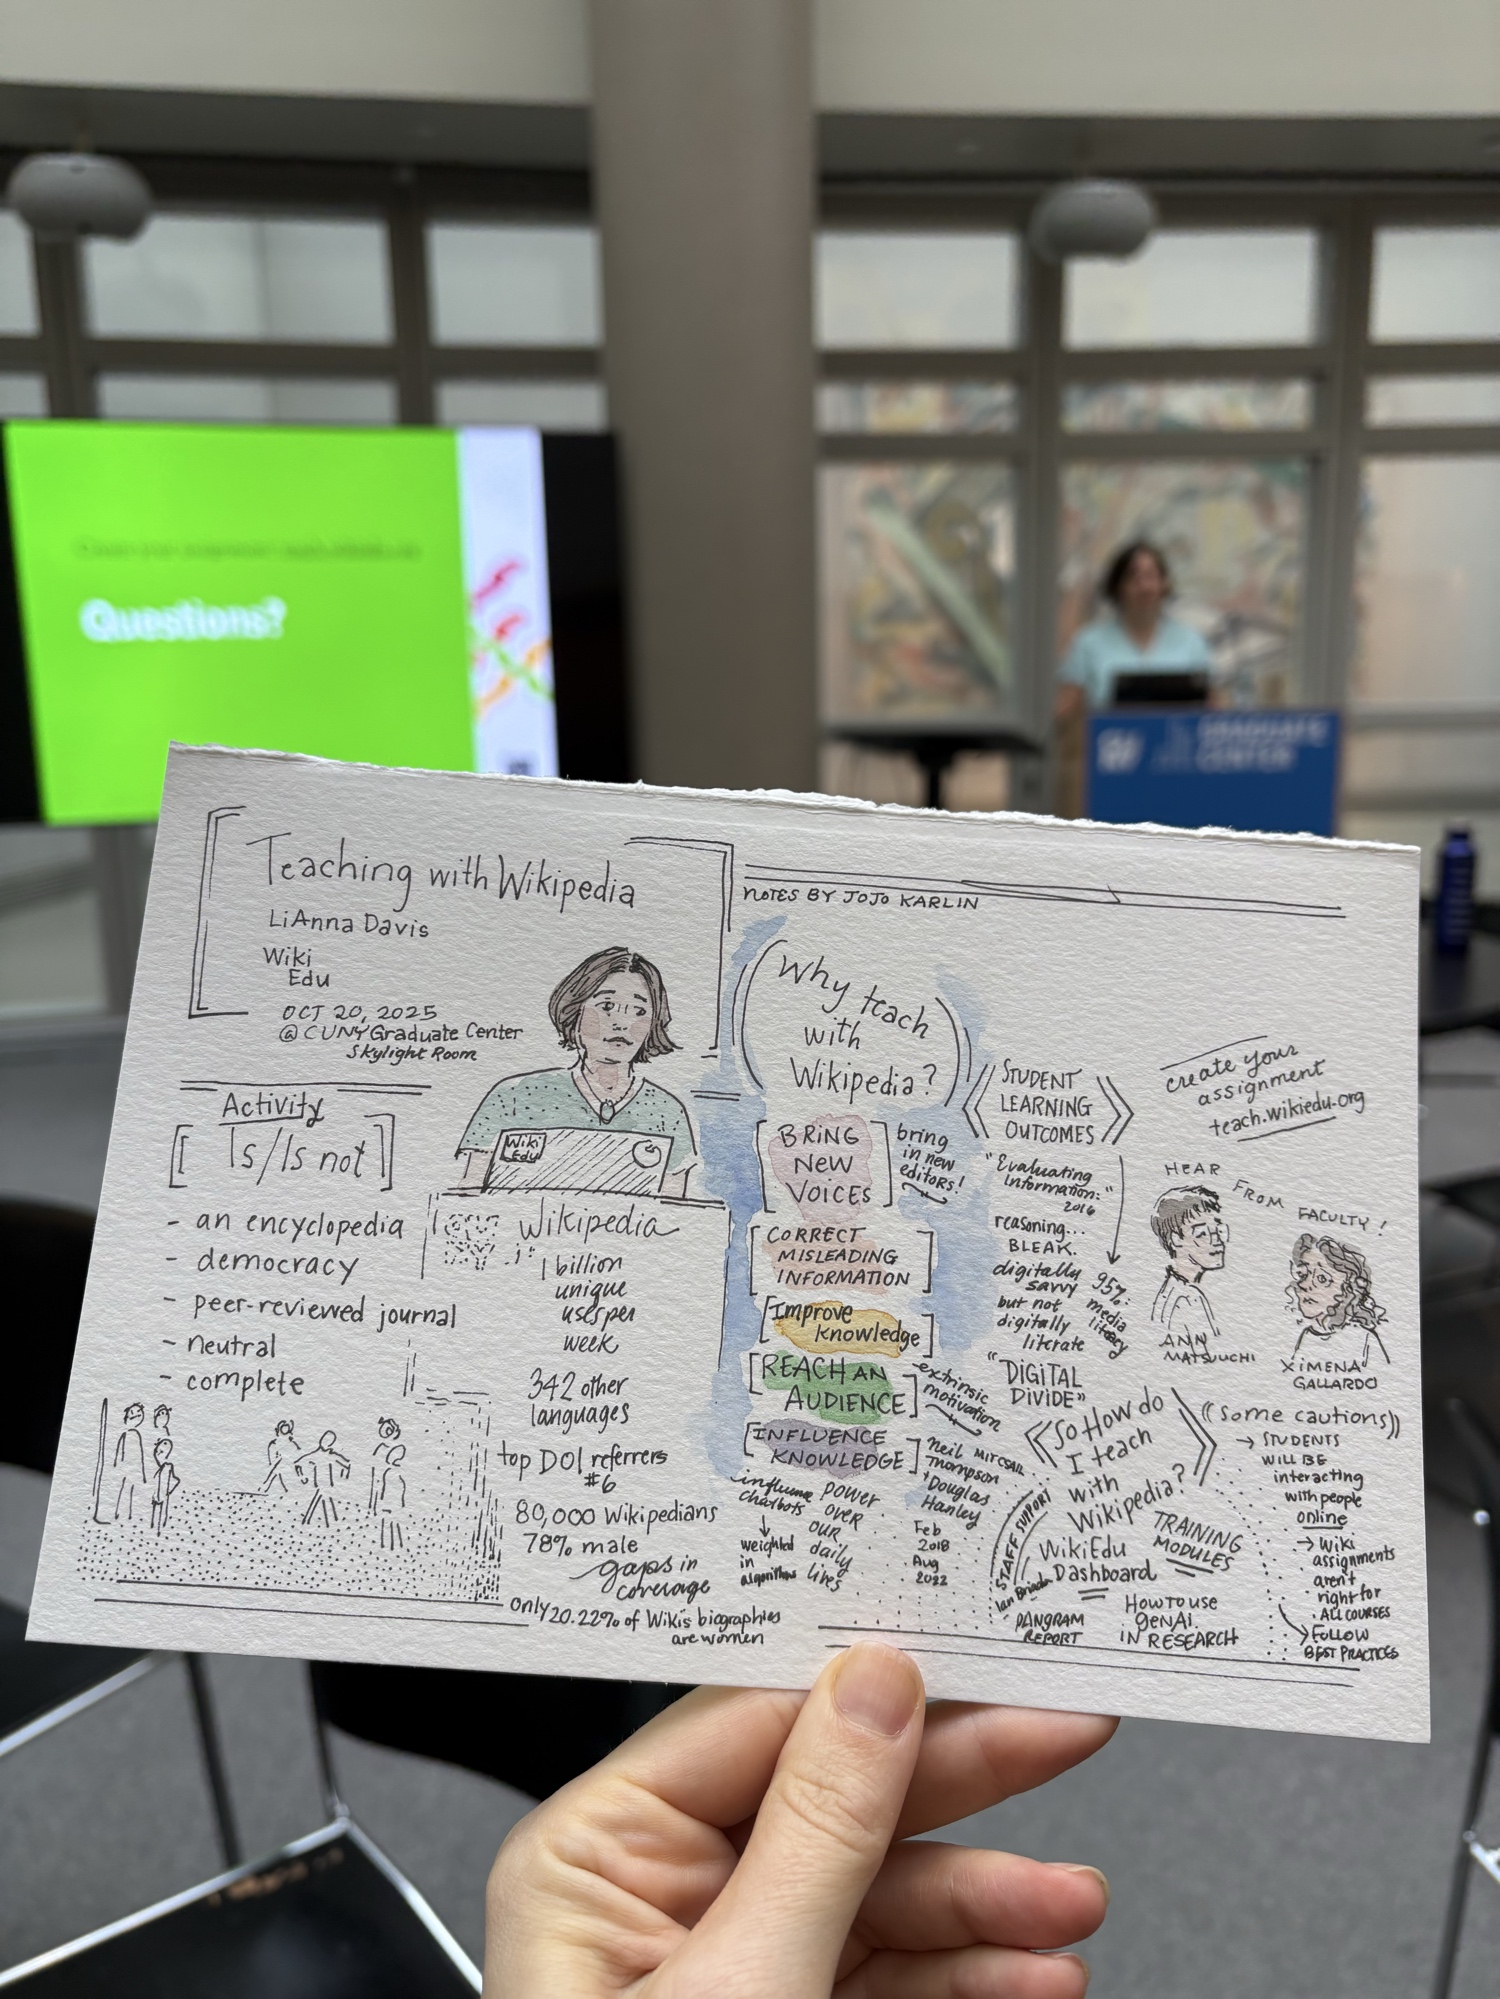 Questions?
GRADUATE
CENTER
Teaching with Wikipedia
LiAnna Davis
Wiki
Edu
OCT 20, 2025
@ CUNY Graduate Center
Skylight Room
Activity
[Is/Is not]
- an encyclopedia
- democracy
- peer-reviewed journal
- neutral
- complete
Wiki
Edu
Wikipedia
1 billion
unique
uses per
week
342 other
languages
top DOI referrers
#6
80,000 Wikipedians
78% male
gaps in
coverage
only 20.22% of Wiki's biographies
are women
NOTES BY JOJO KARLIN
(Why teach
with
Wikipedia?)
[BRING
NEW
VOICES]
bring
in new
editors!
[CORRECT
MISLEADING
INFORMATION]
[Improve
knowledge]
[REACH AN
AUDIENCE]
extrinsic
motivation
[INFLUENCE
KNOWLEDGE]
influence
chatbots
weighted
in
algorithms
power
over
our
daily
lives
Neil
Thompson
Douglas
Hanley
Feb
2018
Aug
2022
STUDENT
LEARNING
OUTCOMES
"Evaluating
Information:"
2016
reasoning...
BLEAK.
digitally
savvy
but not
digitally
literate
95%:
media
literacy
"DIGITAL
DIVIDE"
create your
assignment
teach.wikiedu.org
HEAR
FROM
FACULTY!
ANN
MATSUUCHI
XIMENA
GALLARDO
So How do
I teach
with
Wikipedia?
STAFF SUPPORT
WikiEdu
Dashboard
TRAINING
MODULES
PANGRAM
REPORT
How to use
genAI
IN RESEARCH
((some cautions))
→ STUDENTS
WILL BE
interacting
with people
online
→ Wiki
assignments
aren't
right for
ALL COURSES
→ FOLLOW
BEST PRACTICES